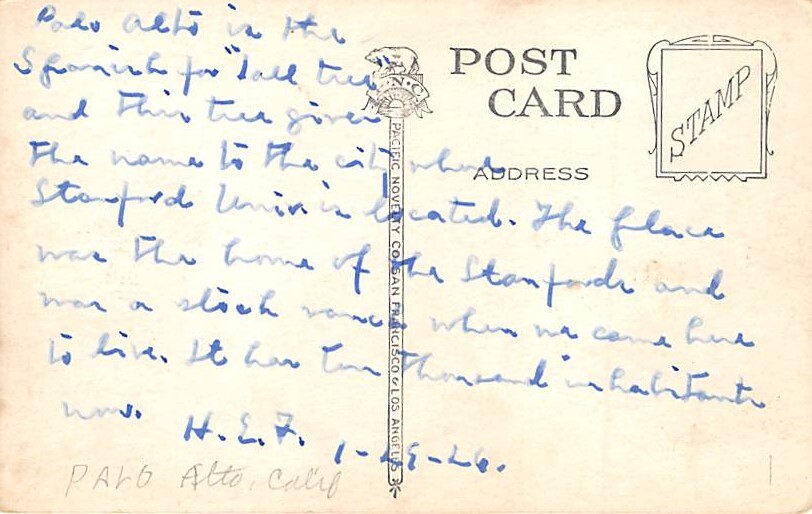 Palo Alto is the
Spanish for "Tall tree"
and this tree gives
the name to the city where
Stanford Univ. is located. The place
was the home of the Stanfords and
was a stock ranch when we came here
to live. It has ten thousand inhabitants
now.
H.E.F. 1-29-26.
PALO Alto, Calif
POST
CARD
ADDRESS
STAMP
P.N.C.
PACIFIC NOVELTY CO. SAN FRANCISCO & LOS ANGELES